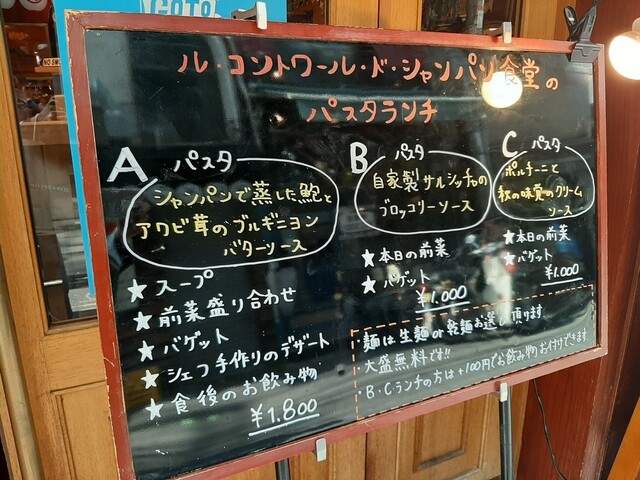 GOTO
NO SMO
ル・コントワール・ド・シャンパン食堂の
パスタランチ
A パスタ
シャンパンで蒸した鮑と
アワビ茸のブルギニヨン
バターソース
★スープ
★前菜盛り合わせ
★バゲット
★シェフ手作りのデザート
★食後のお飲み物
¥1.800
B パスタ
自家製サルシッチャの
ブロッコリーソース
★本日の前菜
★バゲット
¥1.000
C パスタ
ポルチーニと
秋の味覚のクリーム
ソース
★本日の前菜
★バゲット
¥1.000
・麺は生麺or乾麺お選び頂けます
・大盛無料です!!
・B・Cランチの方は+100円でお飲み物お付けできます